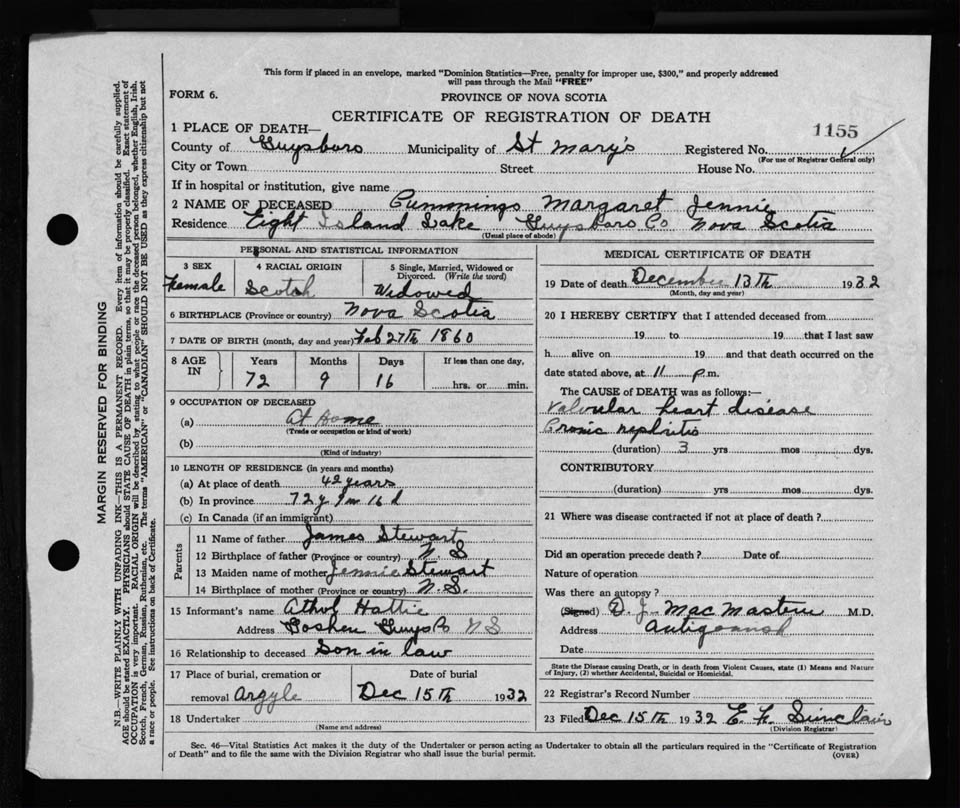 This form if placed in an envelope, marked "Dominion Statistics—Free, penalty for improper use, $300," and properly addressed
will pass through the Mail "FREE"
FORM 6.
PROVINCE OF NOVA SCOTIA
CERTIFICATE OF REGISTRATION OF DEATH
1155
1 PLACE OF DEATH—
County of Guysboro Municipality of St Mary's Registered No.
(For use of Registrar General only)
City or Town Street House No.
If in hospital or institution, give name
2 NAME OF DECEASED Cummings Margaret Jennie
Residence Eight Island Lake Guysboro Co Nova Scotia
(Usual place of abode)
PERSONAL AND STATISTICAL INFORMATION
3 SEX 4 RACIAL ORIGIN 5 Single, Married, Widowed or
Divorced. (Write the word)
Female Scotch Widowed
6 BIRTHPLACE (Province or country) Nova Scotia
7 DATE OF BIRTH (month, day and year) Feb 27th 1860
8 AGE IN Years Months Days If less than one day,
72 9 16 hrs. or min.
9 OCCUPATION OF DECEASED
(a) At Home
(Trade or occupation or kind of work)
(b)
(Kind of industry)
10 LENGTH OF RESIDENCE (in years and months)
(a) At place of death 42 years
(b) In province 72 y 9 m 16 d
(c) In Canada (if an immigrant)
Parents
11 Name of father James Stewart
12 Birthplace of father (Province or country) N. S
13 Maiden name of mother Jennie Stewart
14 Birthplace of mother (Province or country) N. S.
15 Informant's name Athol Hattie
Address Goshen Guys Co N S
16 Relationship to deceased Son in law
17 Place of burial, cremation or Date of burial
removal Argyle Dec 15th 1932
18 Undertaker
(Name and address)
MEDICAL CERTIFICATE OF DEATH
19 Date of death December 13th 1932
(Month, day and year)
20 I HEREBY CERTIFY that I attended deceased from
19 to 19 that I last saw
h alive on 19 and that death occurred on the
date stated above, at 11 p.m.
The CAUSE OF DEATH was as follows:
Valvular heart disease
Cronic nephritis
(duration) 3 yrs mos dys.
CONTRIBUTORY
(duration) yrs mos dys.
21 Where was disease contracted if not at place of death?
Did an operation precede death? Date of
Nature of operation
Was there an autopsy?
(Signed) D. J. MacMaster M.D.
Address Antigonish
Date
State the Disease causing Death, or in death from Violent Causes, state (1) Means and Nature
of Injury, (2) whether Accidental, Suicidal or Homicidal.
22 Registrar's Record Number
23 Filed Dec 15th 1932 Sinclair
(Division Registrar)
Sec. 46—Vital Statistics Act makes it the duty of the Undertaker or person acting as Undertaker to obtain all the particulars required in the "Certificate of Registration
of Death" and to file the same with the Division Registrar who shall issue the burial permit.
(OVER)
MARGIN RESERVED FOR BINDING
N.B.—WRITE PLAINLY WITH UNFADING INK—THIS IS A PERMANENT RECORD. Every item of information should be carefully supplied.
AGE should be stated EXACTLY. PHYSICIANS should STATE CAUSE OF DEATH in plain terms, so that it may be properly classified. Exact statement of
OCCUPATION is very important. RACIAL ORIGIN will be described by stating to what people or race the deceased person belonged, whether English, Irish,
Scotch, French, German, Russian, Ruthenian, etc. The terms "AMERICAN" or "CANADIAN" SHOULD NOT BE USED as they express citizenship but not
a race or people. See instructions on back of Certificate.